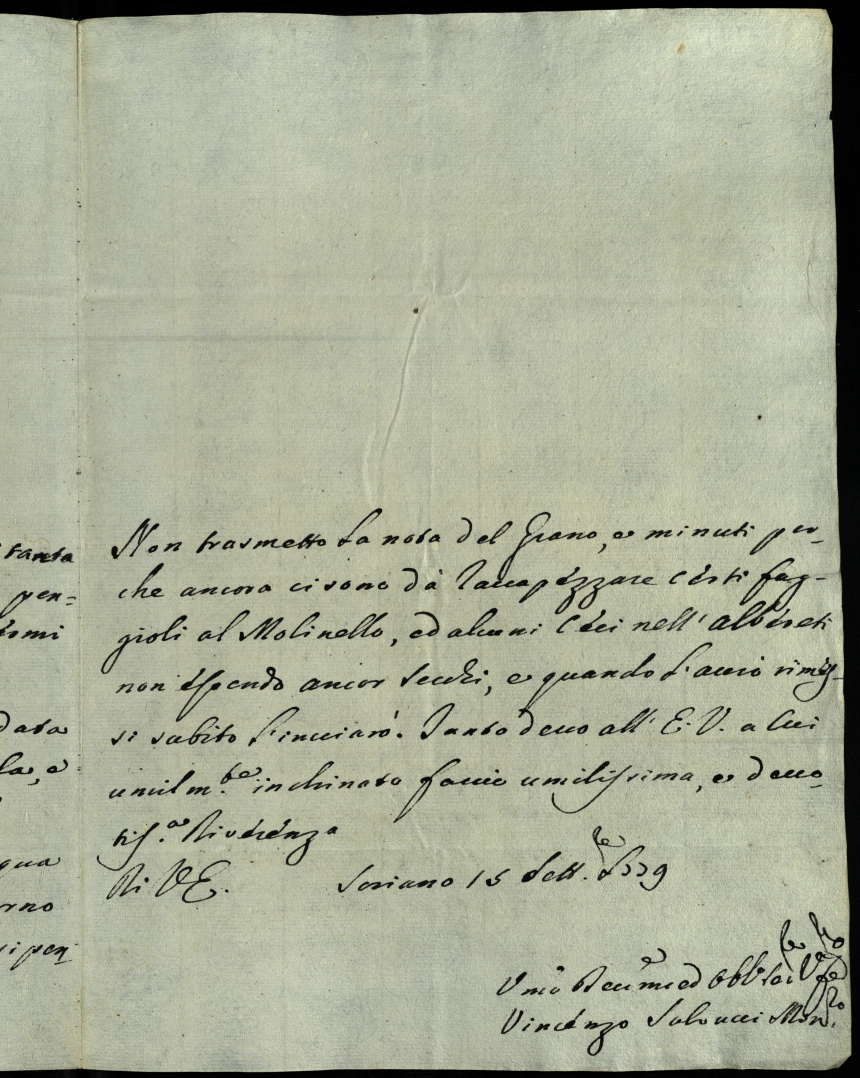 tanta
pen=
da
la, e
qua
rno
si pen
Non trasmetto la nota del Grano, e minuti per_
che ancora ci sono dà raccapézzare cérti fag-
gioli al Molinello, ed alcuni Céci nell' albéreti
non éssendo ancor secchi, e quando l'avrò rimés_
si subito l'inviarò. Tanto devo all' E. V. a cui
umilm.te inchinato faccio umilissima, e devo_
tiss.a Rivérénza
Di V E. Soriano 15 Sett.re 1779
Vincénzo Salvucci